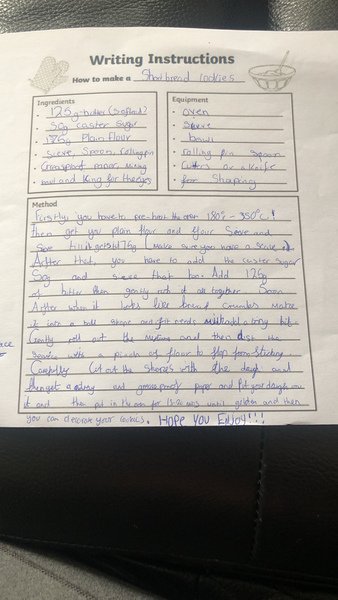 Writing Instructions
How to make a Shortbread cookies
Ingredients
• 125g butter (softend)
• 50g caster sugar
• 175g Plain flour
• sieve, Spoon, rolling pin
• Greaseproof paper, mixing
• bowl and icing for the
Equipment
• oven
• Sieve
• bowl
• rolling pin spoon
• Cutters or a knife
• for Shaping
Method
Firstly, you have to pre-heat the oven 180°c - 350°c!
Then get you plain flour and flour Seeve and
Seve till it gets to 175g (make sure you have a seive
After that, you have to add the caster sugar
50g and sieve that too. Add 125g
of butter then gently rub it all together. Soon
After when it looks like bread crumbs make
it into a ball shape and if it needs milk add a tiny bit.
Gently roll out the mixture and then dust the
with a pinch of flour to stop from sticking.
Carefully cut out the shapes with the dough and
then get a tray and greaseproof paper and Put your dough on
it and then put in the oven for 15-20 mins until golden and then
you can decorate your cookies. HOPE YOU ENJOY!!!